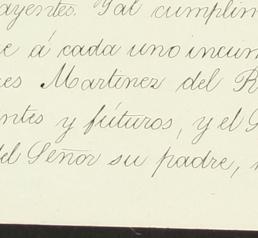 ayentes. Y al cumplim
e á cada uno incum
es Martinez del R
entes y fúturos, y el
del Señor su padre,